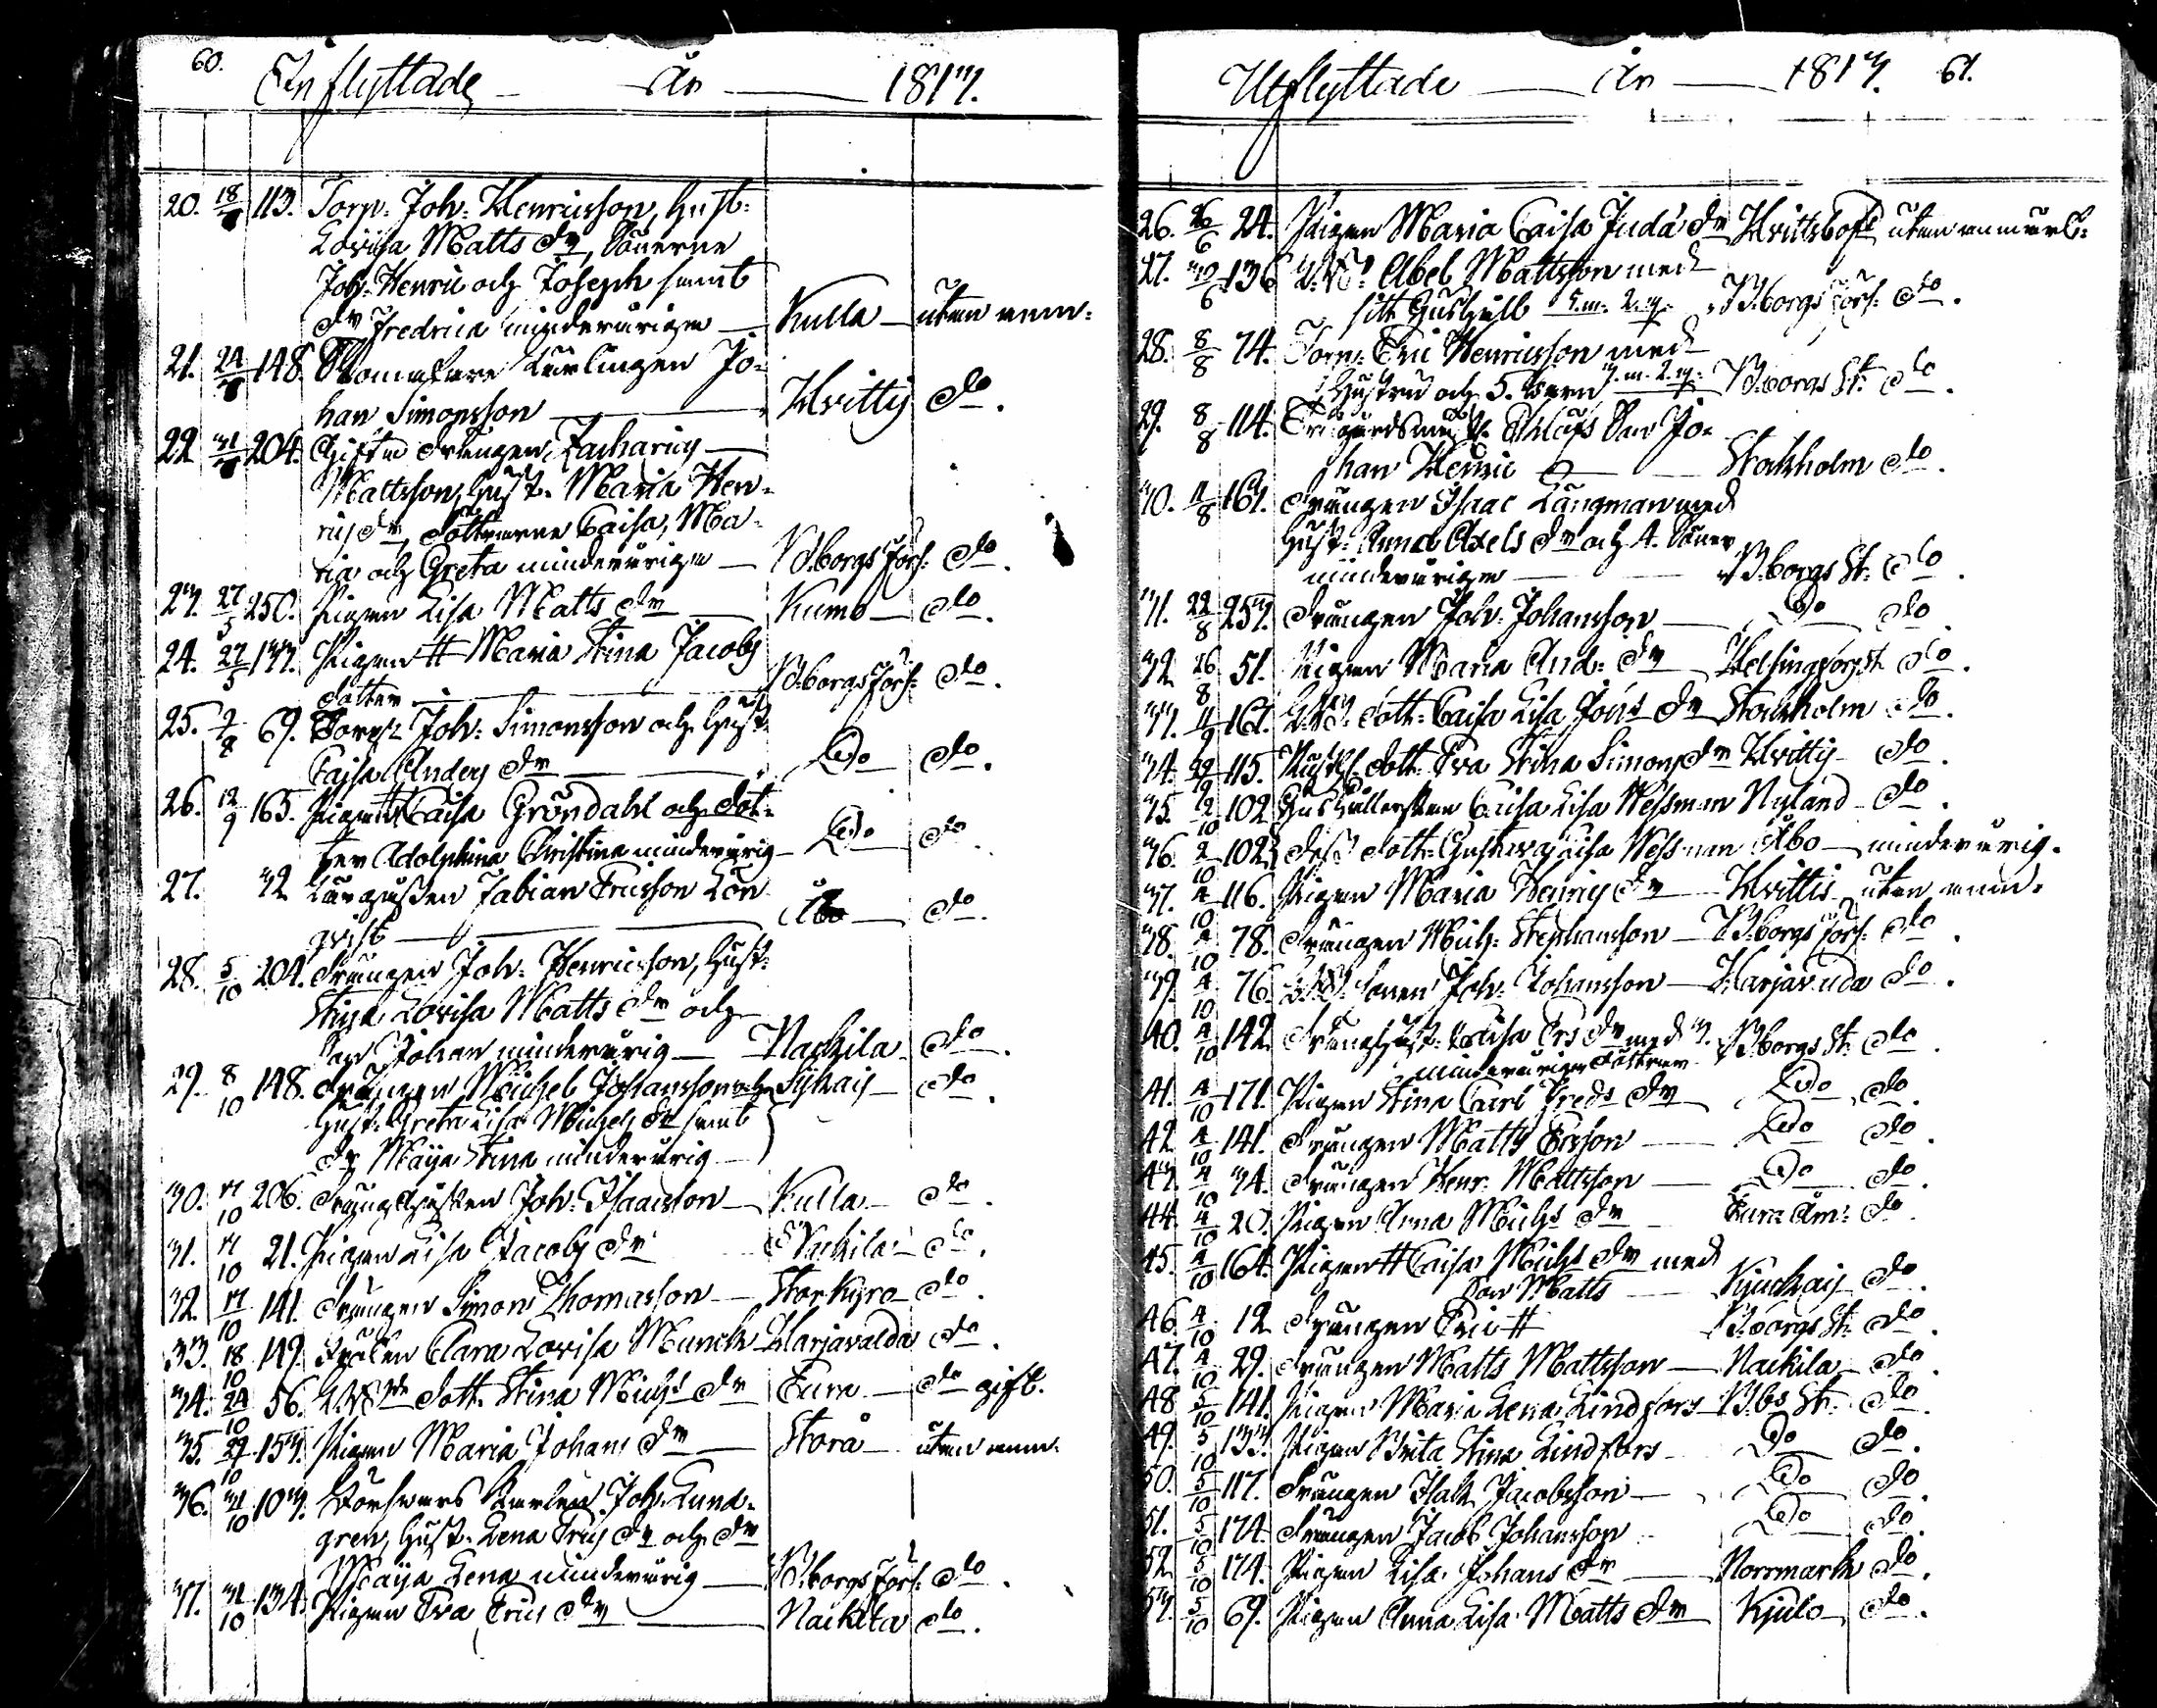 60.
Inflyttade - År - 1817.
20. 18/7 113. Torp. Joh: Henricsson, Hust:
Lovisa Matts dr, Sönerne
Joh: Henric och Joseph samt
dr Fredrica minderårige — Kulla — utan anm:
21. 24/7 148. Skomakare Lärlingen Jo-
han Simonsson — Hvittis do.
22 31/7 204. Gifta Drängen Zacharias
Mattsson, Hust. Maria Hen-
rics dr, döttrarne Caisa, Ma-
ria och Greta minderårige — B:borgs förs: do.
23. 27/5 250. Pigan Lisa Matts dr — Kumo — do.
24. 27/5 133. Pigan # Maria Stina Jacobs
dotter — B:borgs förs: do.
25. 2/8 69. Torp: Joh: Simonsson och Hust.
Cajsa Anders dr — Do do.
26. 12/9 165. Pigan # Caisa Gröndahl och dot-
ter Adolphina Christina minderårig — Do do.
27. 32 Fabian Ericsson Lön
qvist — Åbo — do.
28. 5/10 204. Drängen Joh: Henricsson, Hust:
Stina Lovisa Matts dr och
Son Johan minderårig — Nackila — do.
29. 8/10 148. Drängen Michel Johansson och
Hust: Greta Lisa Michels dr samt
dr Maija Stina minderårig — do.
30. 11/10 206. Joh: Isaacsson — Kulla — do.
31. 11/10 21. Pigan Lisa Jacobs dr — Nackila — do.
32. 17/10 141. Drängen Simon Thomasson — Storkyro — do.
33. 18/10 149. Frölen Clara Lovisa Munck — Harjavalda do.
34. 24/10 56. dott. Stina Michs dr Eura — do gift.
35. 27/10 153. Pigan Maria Johans dr — Storå — utan anm.
36. 31/10 103. Försvars Karlen Joh: Lund-
gren, Hust. Lena Erics dr och dr
Maija Lena minderårig — B:borgs förs: do.
37. 31/10 134. Pigan Eva Erics dr — Nackila do.
Utflyttade — År — 1817. 61.
26. 26/6 24. Pigan Maria Caisa Juda dr Hvittisbofj utan anmärk:
27. 30/6 136 Abel Mattsson med
sitt Hushåll 5.m. 2.q. B:borgs förs: do.
28. 8/8 74. Torp: Eric Henricsson med
Hustru och 5. barn 3.m. 2.q. B:borgs St: do.
29. 8/8 114. Son Jo-
han Henric — Stockholm do.
30. 11/8 161. Drängen Isaac Långman med
Hust: Anna Axels dr och 4. Söner
minderårige — B:borgs St: do.
31. 22/8 253. Drängen Joh: Johansson — Do do.
32 26/8 51. Pigan Maria And: dr — Helsingfors St. do.
33. 11/9 161. dott: Caisa Lisa Jons dr Stockholm do.
34. 22/9 115. dott. Eva Stina Simons dr Hvittis do.
35. 2/10 102 Hushållerskan Caisa Lisa Wessman Nyland do.
36. 2/10 102 dess dott: Gustava Lisa Wessman Åbo — minderårig.
37. 4/10 116. Pigan Maria Henrics dr — Hvittis utan anm.
38. 4/10 78. Drängen Mich: Stephansson — B:borgs förs: do.
39. 4/10 76. Sonen Joh: Johansson — Harjavalda do.
40. 4/10 142. Dräng Hust: Caisa Ers dr med 3.
minderårige döttrar B:borgs St: do.
41. 4/10 171. Pigan Stina Carl Freds dr Do do.
42 4/10 141. Drängen Matts Ersson — Do do.
43. 4/10 34. Drängen Henr: Mattsson — Do do.
44. 4/10 20. Pigan Anna Michs dr — Eura Åm: do.
45. 4/10 164. Pigan # Caisa Michs dr med
Son Matts — do.
46. 4/10 12 Drängen Eric # B:borgs St: do.
47. 4/10 29. Drängen Matts Mattsson — Nackila — do.
48 5/10 141. Pigan Maria Lena Lindfors B:bs St: do.
49. 5/10 133. Pigan Brita Stina Lindfors — Do do.
50. 5/10 117. Drängen Isak Jacobsson — Do do.
51. 5/10 174. Drängen Jacob Johansson Do do.
52 5/10 174. Pigan Lisa Johans dr — Norrmark do.
53. 5/10 69. Pigan Anna Lisa Matts dr Kjulo do.